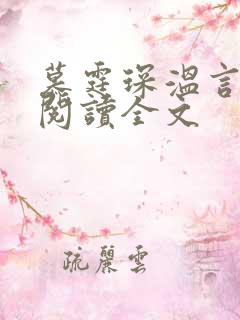 慕霆琛溫言
閱讀全文
疏麗雲